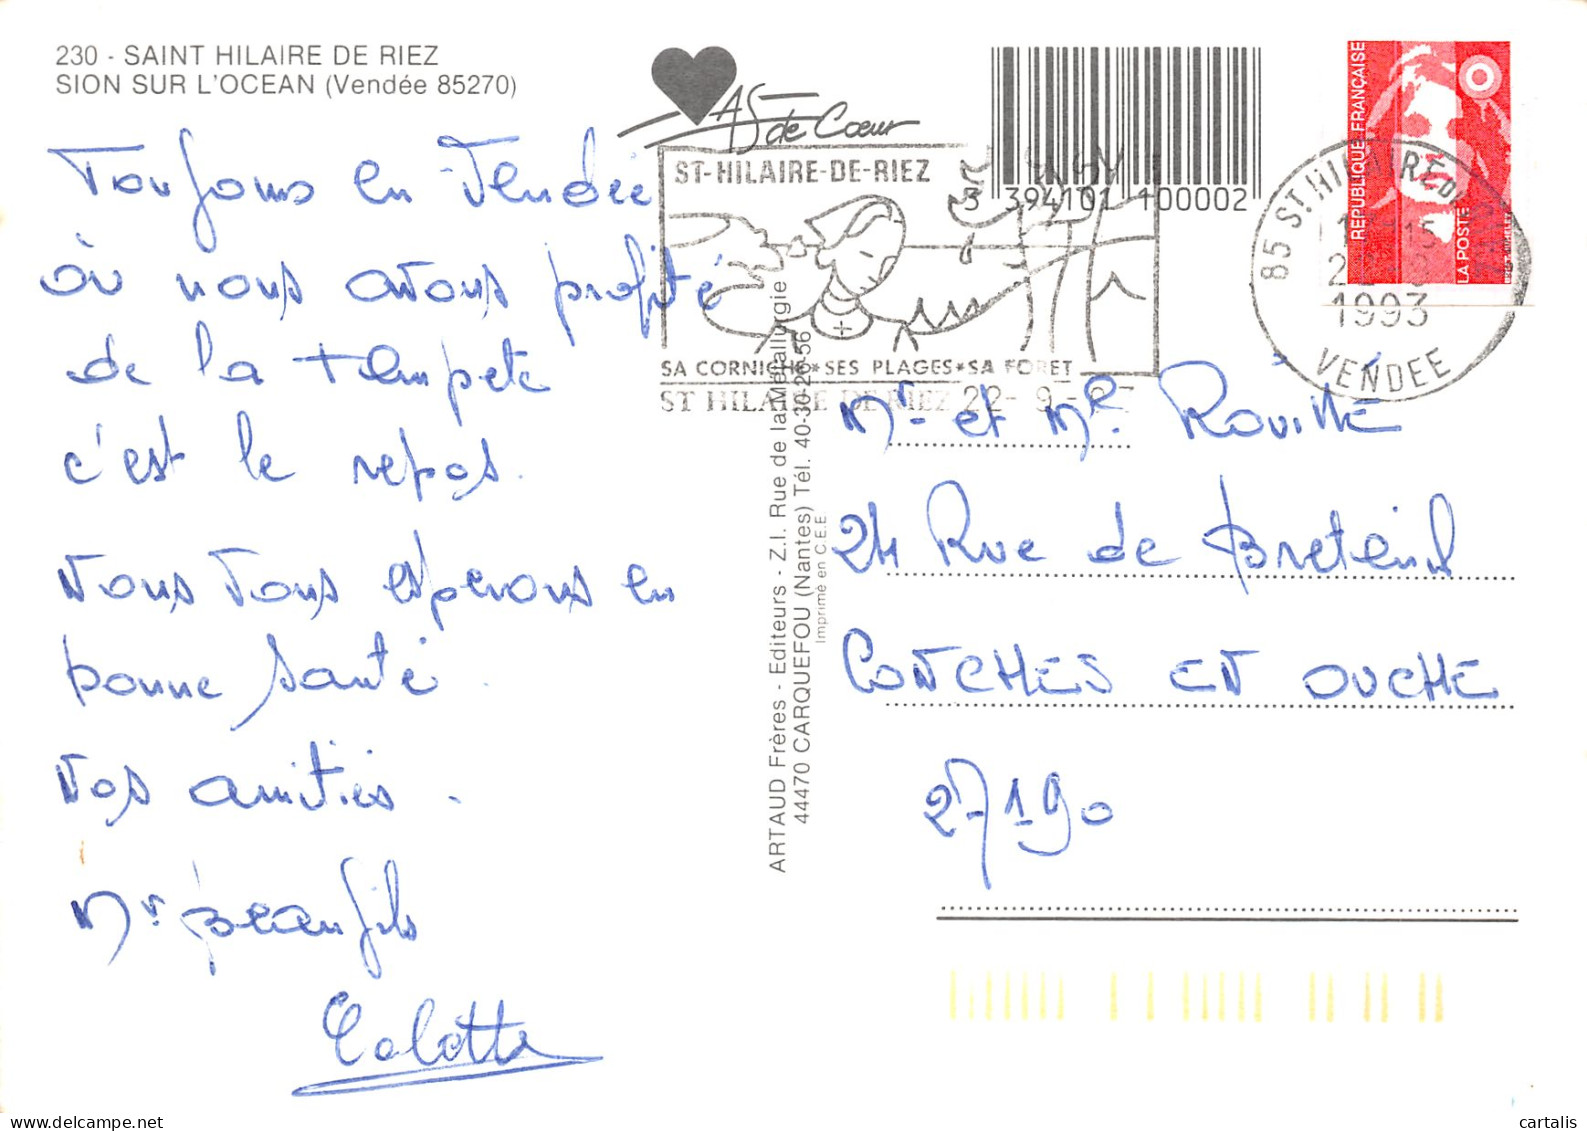 230 - SAINT HILAIRE DE RIEZ
SION SUR L'OCEAN (Vendée 85270)
Toujours en Vendée
où nous avons profité
de la tempete
c'est le repos.
Nous vous esperons en
bonne santé.
Nos amitiés.
Mr Beaufils
Colette
AS de Cœur
ST-HILAIRE-DE-RIEZ
SA CORNICHE*SES PLAGES*SA FORET
ST HILAIRE DE RIEZ 22-9-
3 394101 100002
REPUBLIQUE FRANÇAISE
LA POSTE
85 ST HILAIRE DE RIEZ
1993
VENDEE
ARTAUD Frères - Editeurs - Z.I. Rue de la Métallurgie
44470 CARQUEFOU (Nantes) Tél. 40-30-26-56
Imprimé en C.E.E
Mr et Me
24 Rue de Breteuil
CONCHES EN OUCHE
27190
cartalis